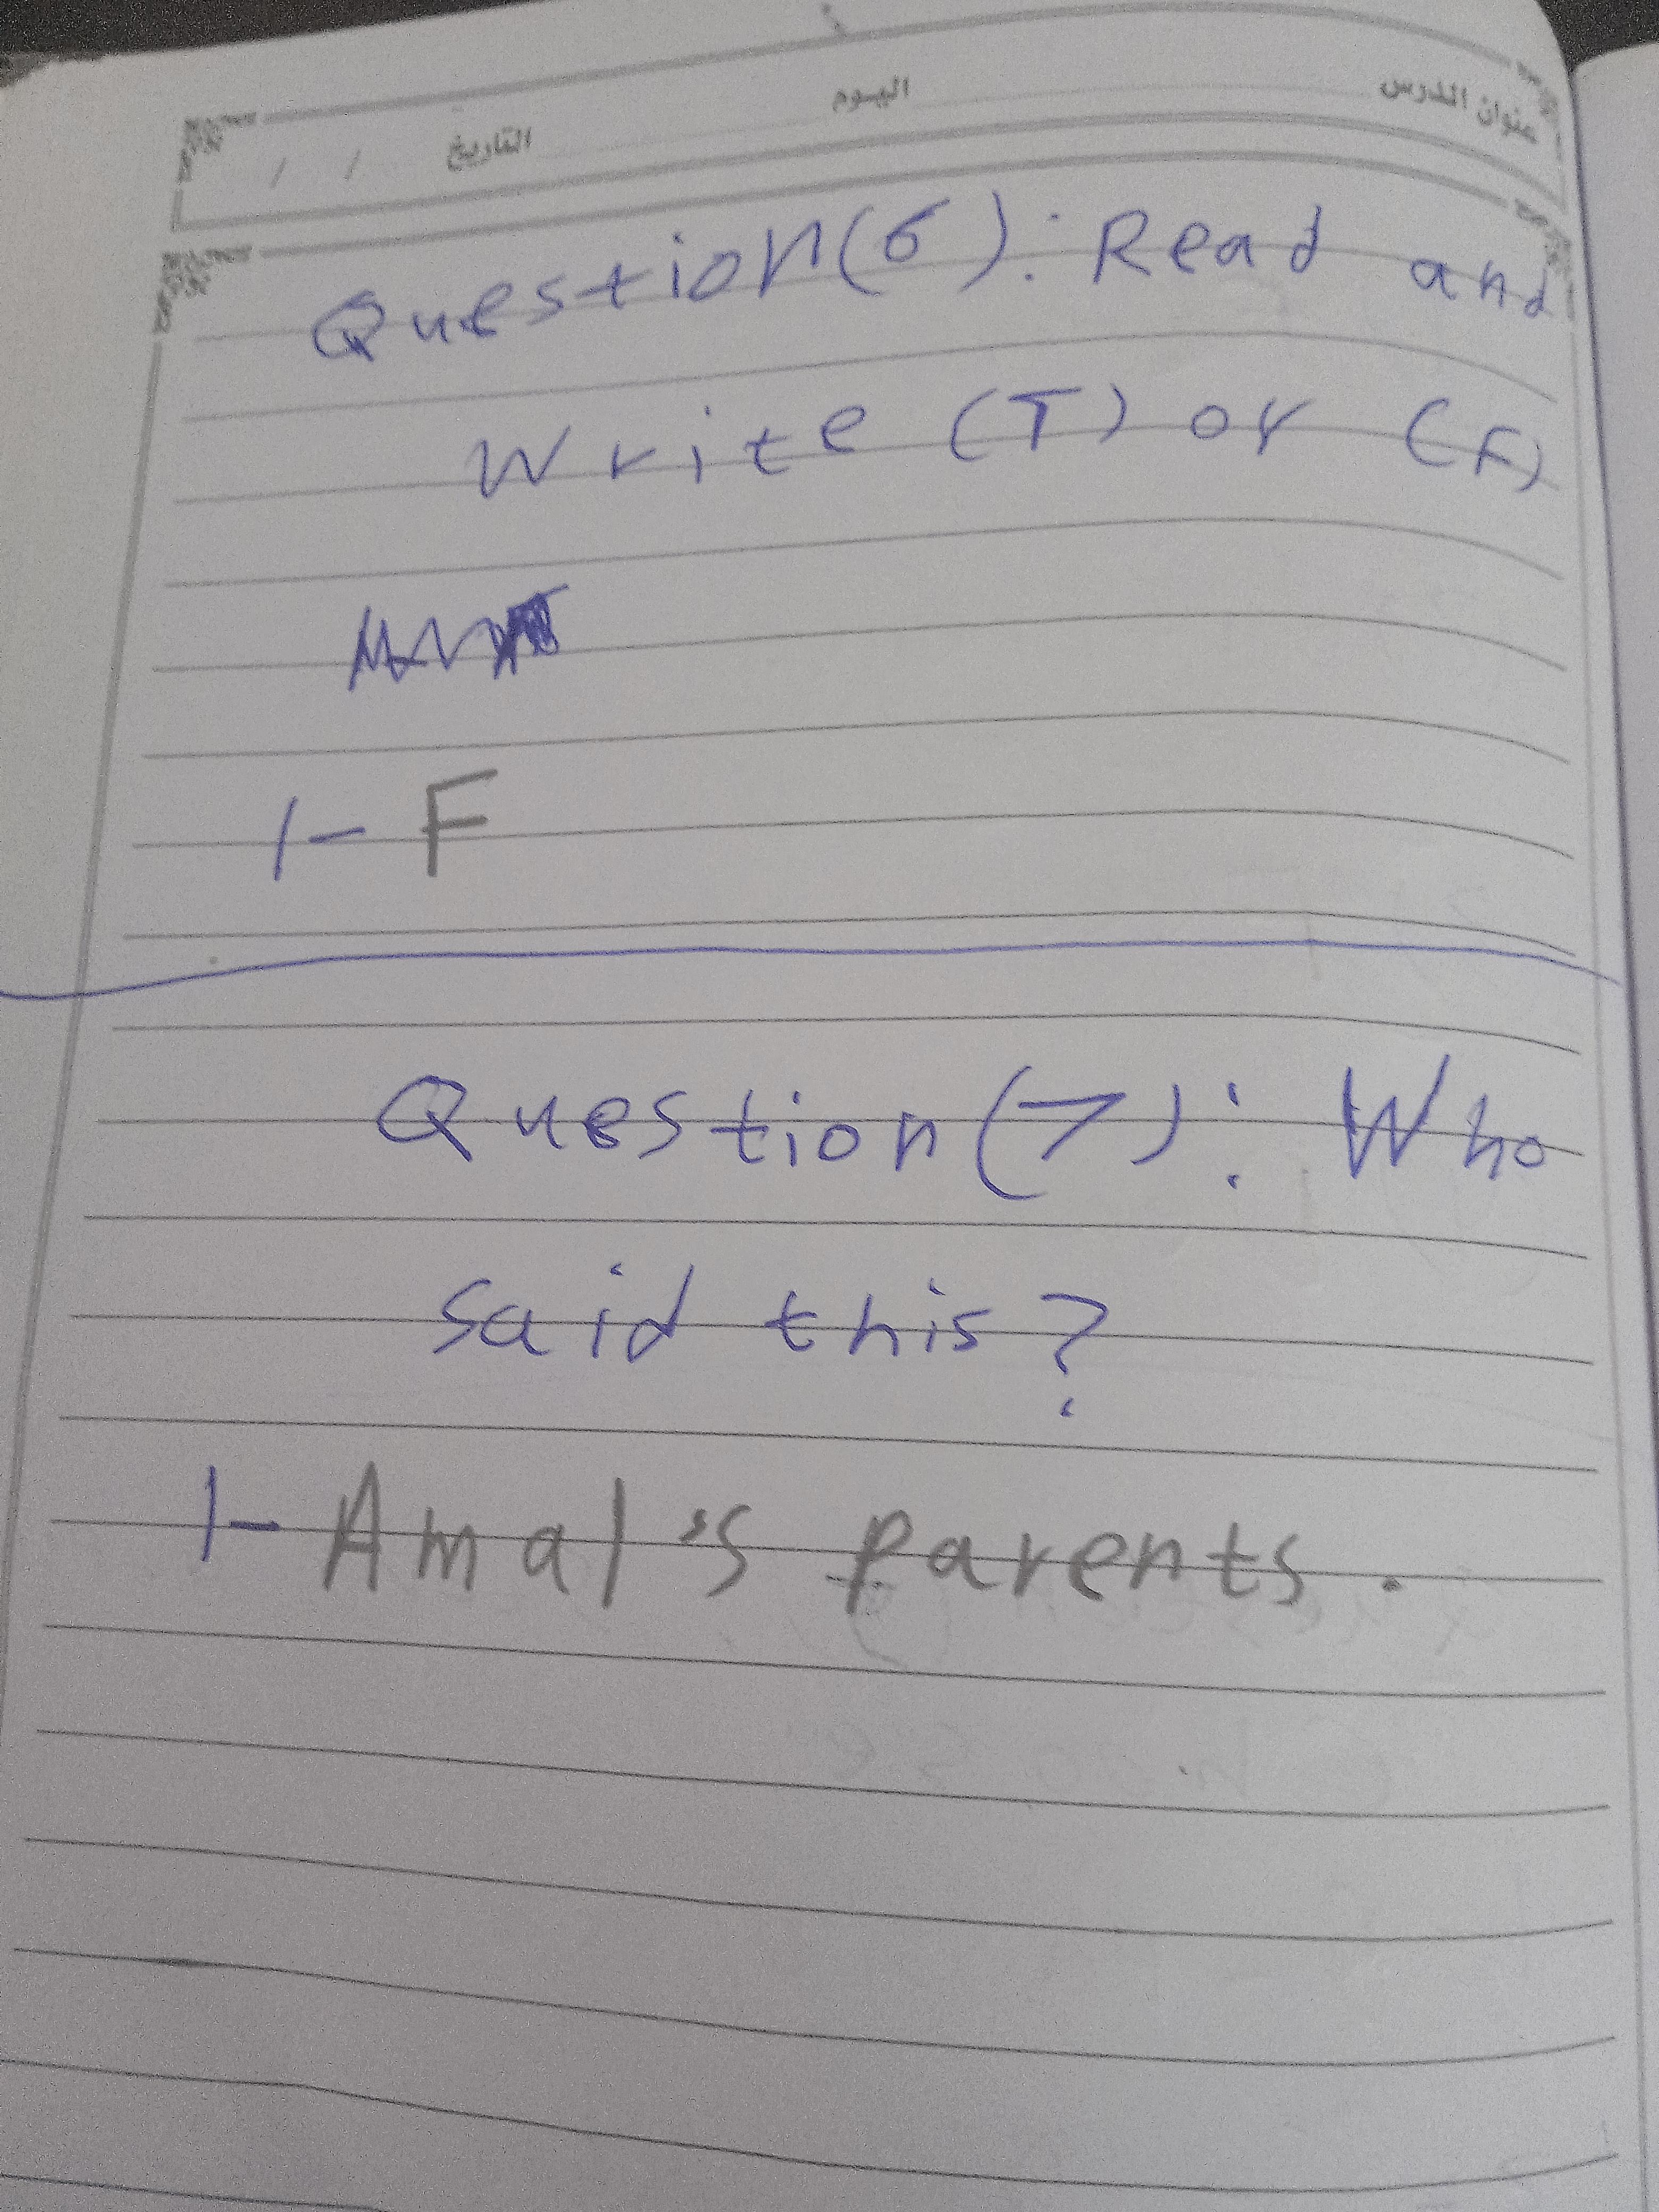 عنوان الدرس اليوم التاريخ / /
Question(6): Read and
Write (T) or (F)
1- F
Question(7): Who
said this?
1- Amal's parents.